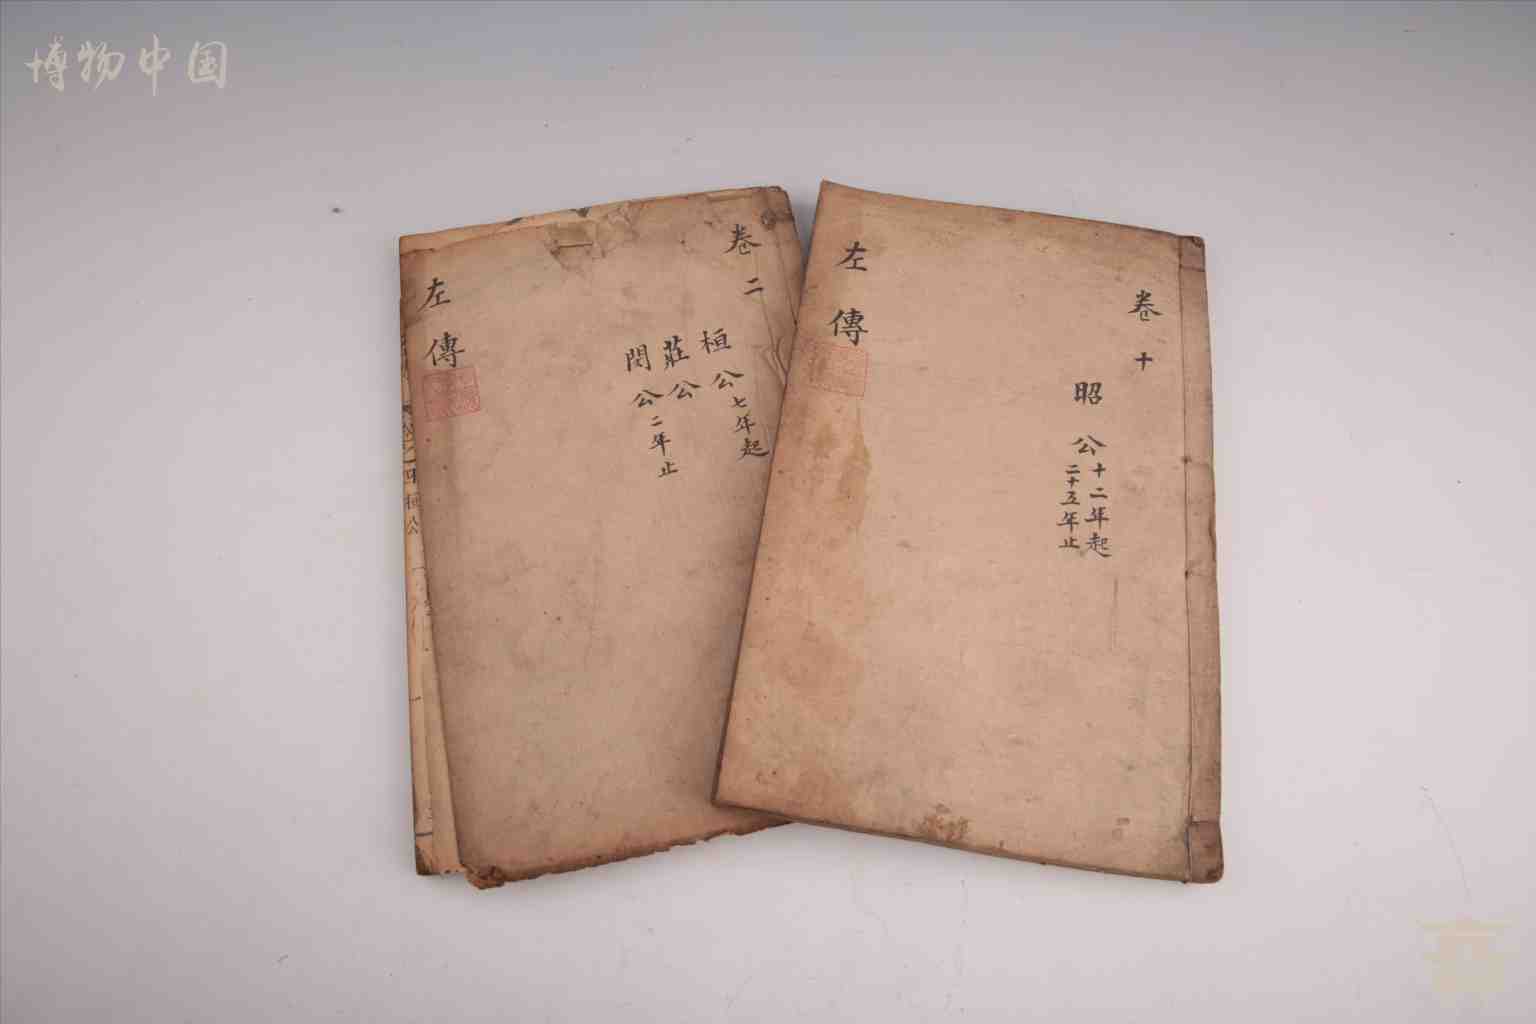 博物中国
卷二
桓公七年起
莊公
閔公二年止
左傳
桓公
卷十
昭公十二年起
二十五年止
左傳